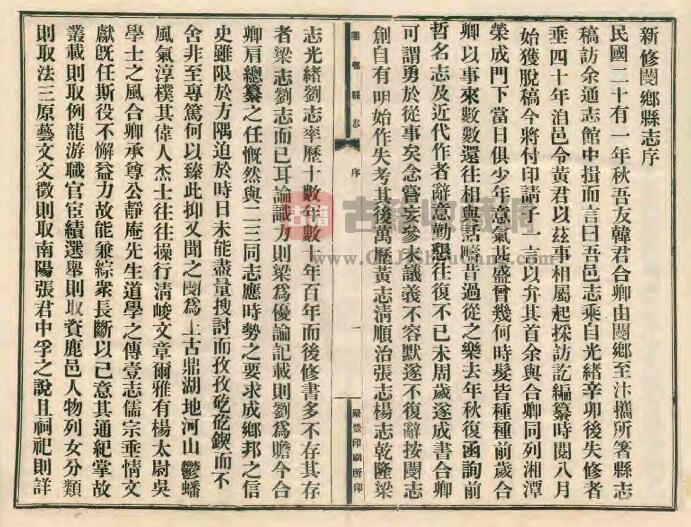 新修閿鄉縣志序
民國二十有一年秋吾友韓君合卿由閿鄉至汴攜所箸縣志
稿訪余通志館中揖而言曰吾邑志乘自光緒辛卯後失修者
垂四十年洎邑令黃君以茲事相屬起採訪訖編纂時閱八月
始獲脫稿今將付印請子一言以弁其首余與合卿同列湘潭
榮成門下當日俱少年意氣甚盛曾幾何時髮皆種種前歲合
卿以事來數數還往相與話疇昔過從之樂去年秋復函詢前
哲名志及近代作者辭意勤懇往復不已未周歲遂成書合卿
可謂勇於從事矣念嘗妄參末議義不容默遂不復辭按閿志
創自有明始作失考其後萬歷黃志清順治張志楊志乾隆梁
閿鄉縣志
序
一
聚興印刷所印
志光緒劉志率歷十數年數十年百年而後修書多不存其存
者梁志劉志而已耳論識力則梁為優論記載則劉為贍今合
卿肩總纂之任慨然與二三同志應時勢之要求成鄉邦之信
史雖限於方隅迫於時日未能盡量搜討而孜孜矻矻鍥而不
舍非至專篤何以臻此抑又聞之閿為上古鼎湖地河山鬱蟠
風氣淳樸其偉人杰士往往操行清峻文章爾雅有楊太尉吳
學士之風合卿承尊公靜庵先生道學之傳壹志儒宗垂情文
獻既任斯役不懈益力故能兼綜眾長斷以己意其通紀掌故
叢載則取例龍游職官宦績選舉則取資鹿邑人物列女分類
則取法三原藝文文徵則取南陽張君中孚之說且祠祀則詳
古籍
古籍收藏網
www.GJShuCang.com